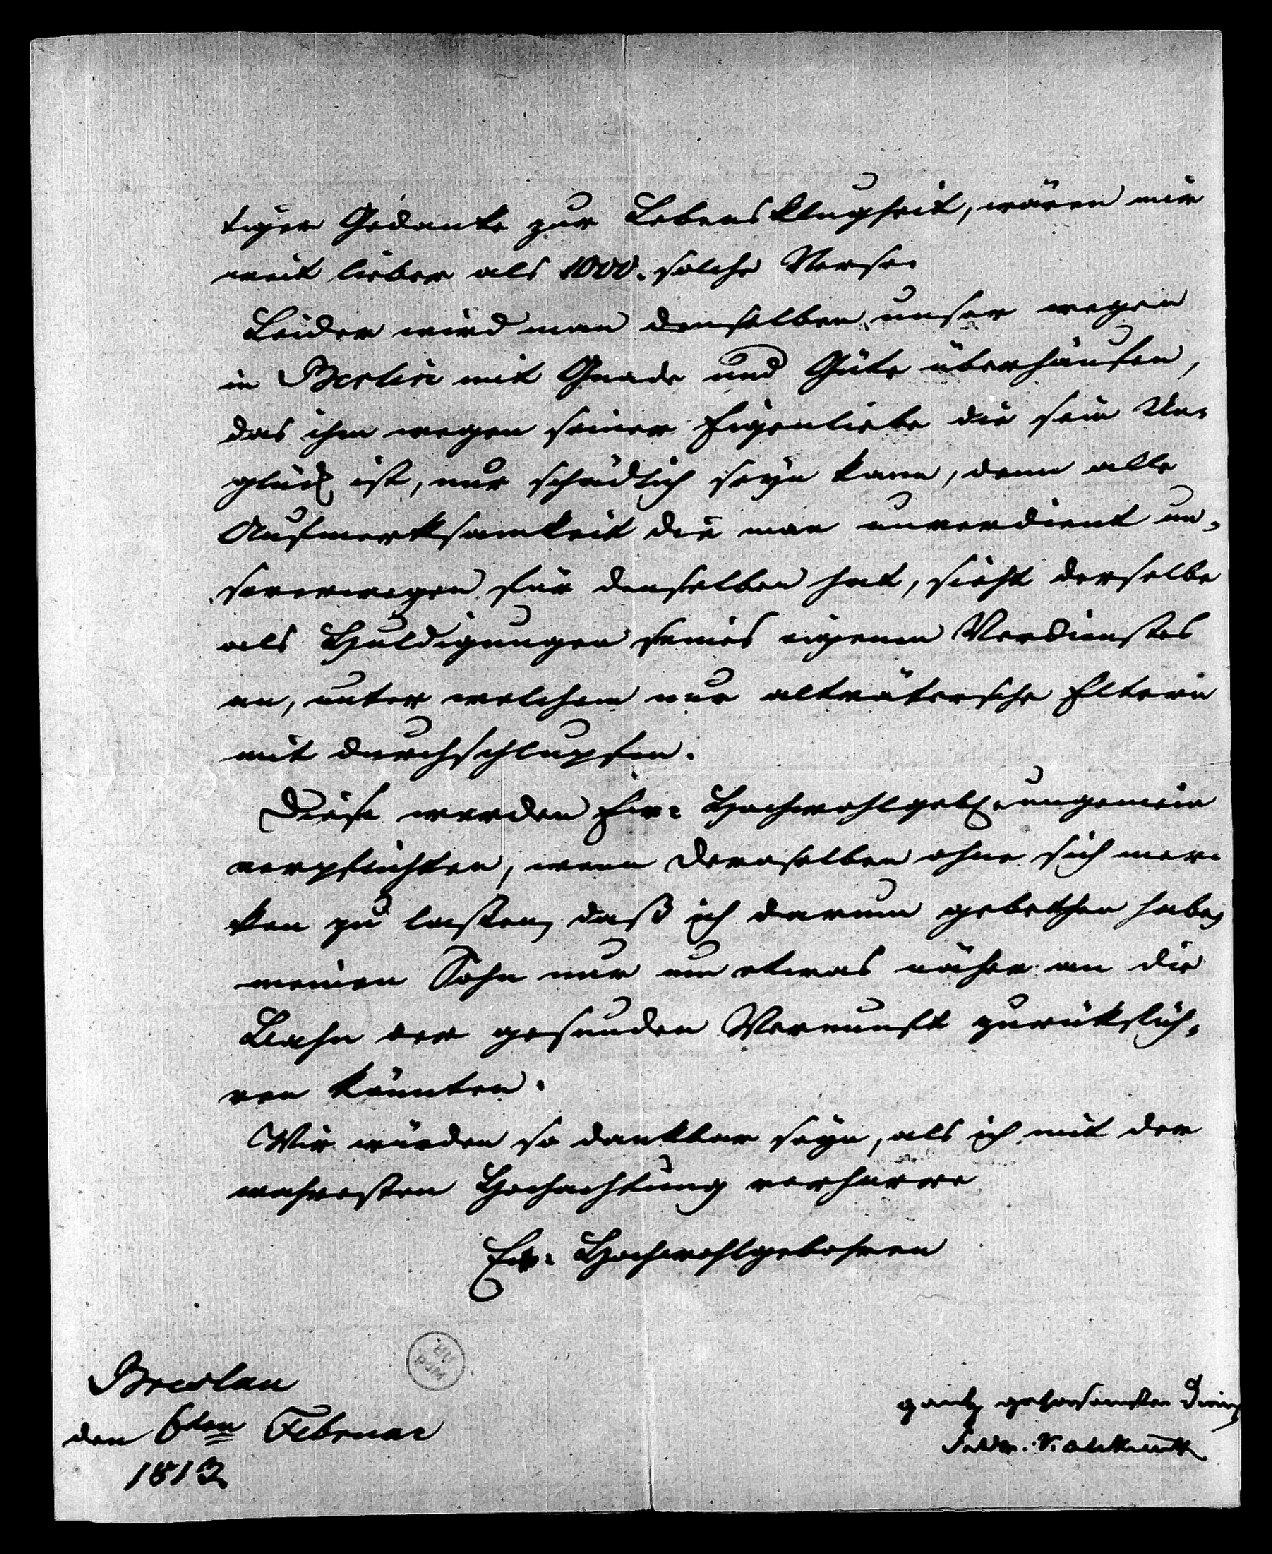 tiger Gedanke zur Lebensklugheit, wären mir
weit lieber als 1000. solche Verse.
Leider wird man denselben unser wegen
in Berlin mit Gnade und Güte überhäufen,
das ihm wegen seiner Eigenliebe die sein Un-
glück ist, nur schädlich seyn kann, denn alle
Aufmerksamkeit die man unverdient un-
sererwegen für denselben hat, sieht derselbe
als Huldigungen seines eigenen Verdienstes
an, unter welchem nur altvätersche Eltern
mit durchschlupfen.
Diese werden Ew: Hochwohlgeb. ungemein
verpflichten, wenn dieselben ohne sich mer-
ken zu lassen, daß ich darum gebethen habe,
meinen Sohn nur um etwas näher an die
Bahn der gesunden Vernunft zurükfüh-
ren könnten.
Wir würden so dankbar seyn, als ich mit der
wahresten Hochachtung verharre
Ew: Hochwohlgebohren
Breslau
den 6ten Februar
1812
gantz gehorsamster Diener